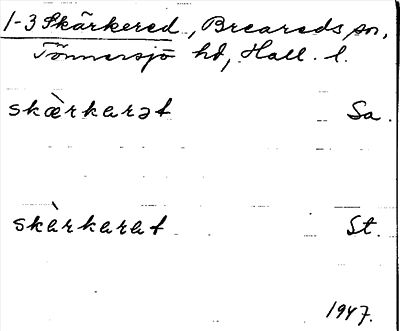 1-3 Skärkered, Breareds sn,
Tönnersjö hd, Hall. l.
skæ̀rkarət Sa.
skàrkarat St.
1947.